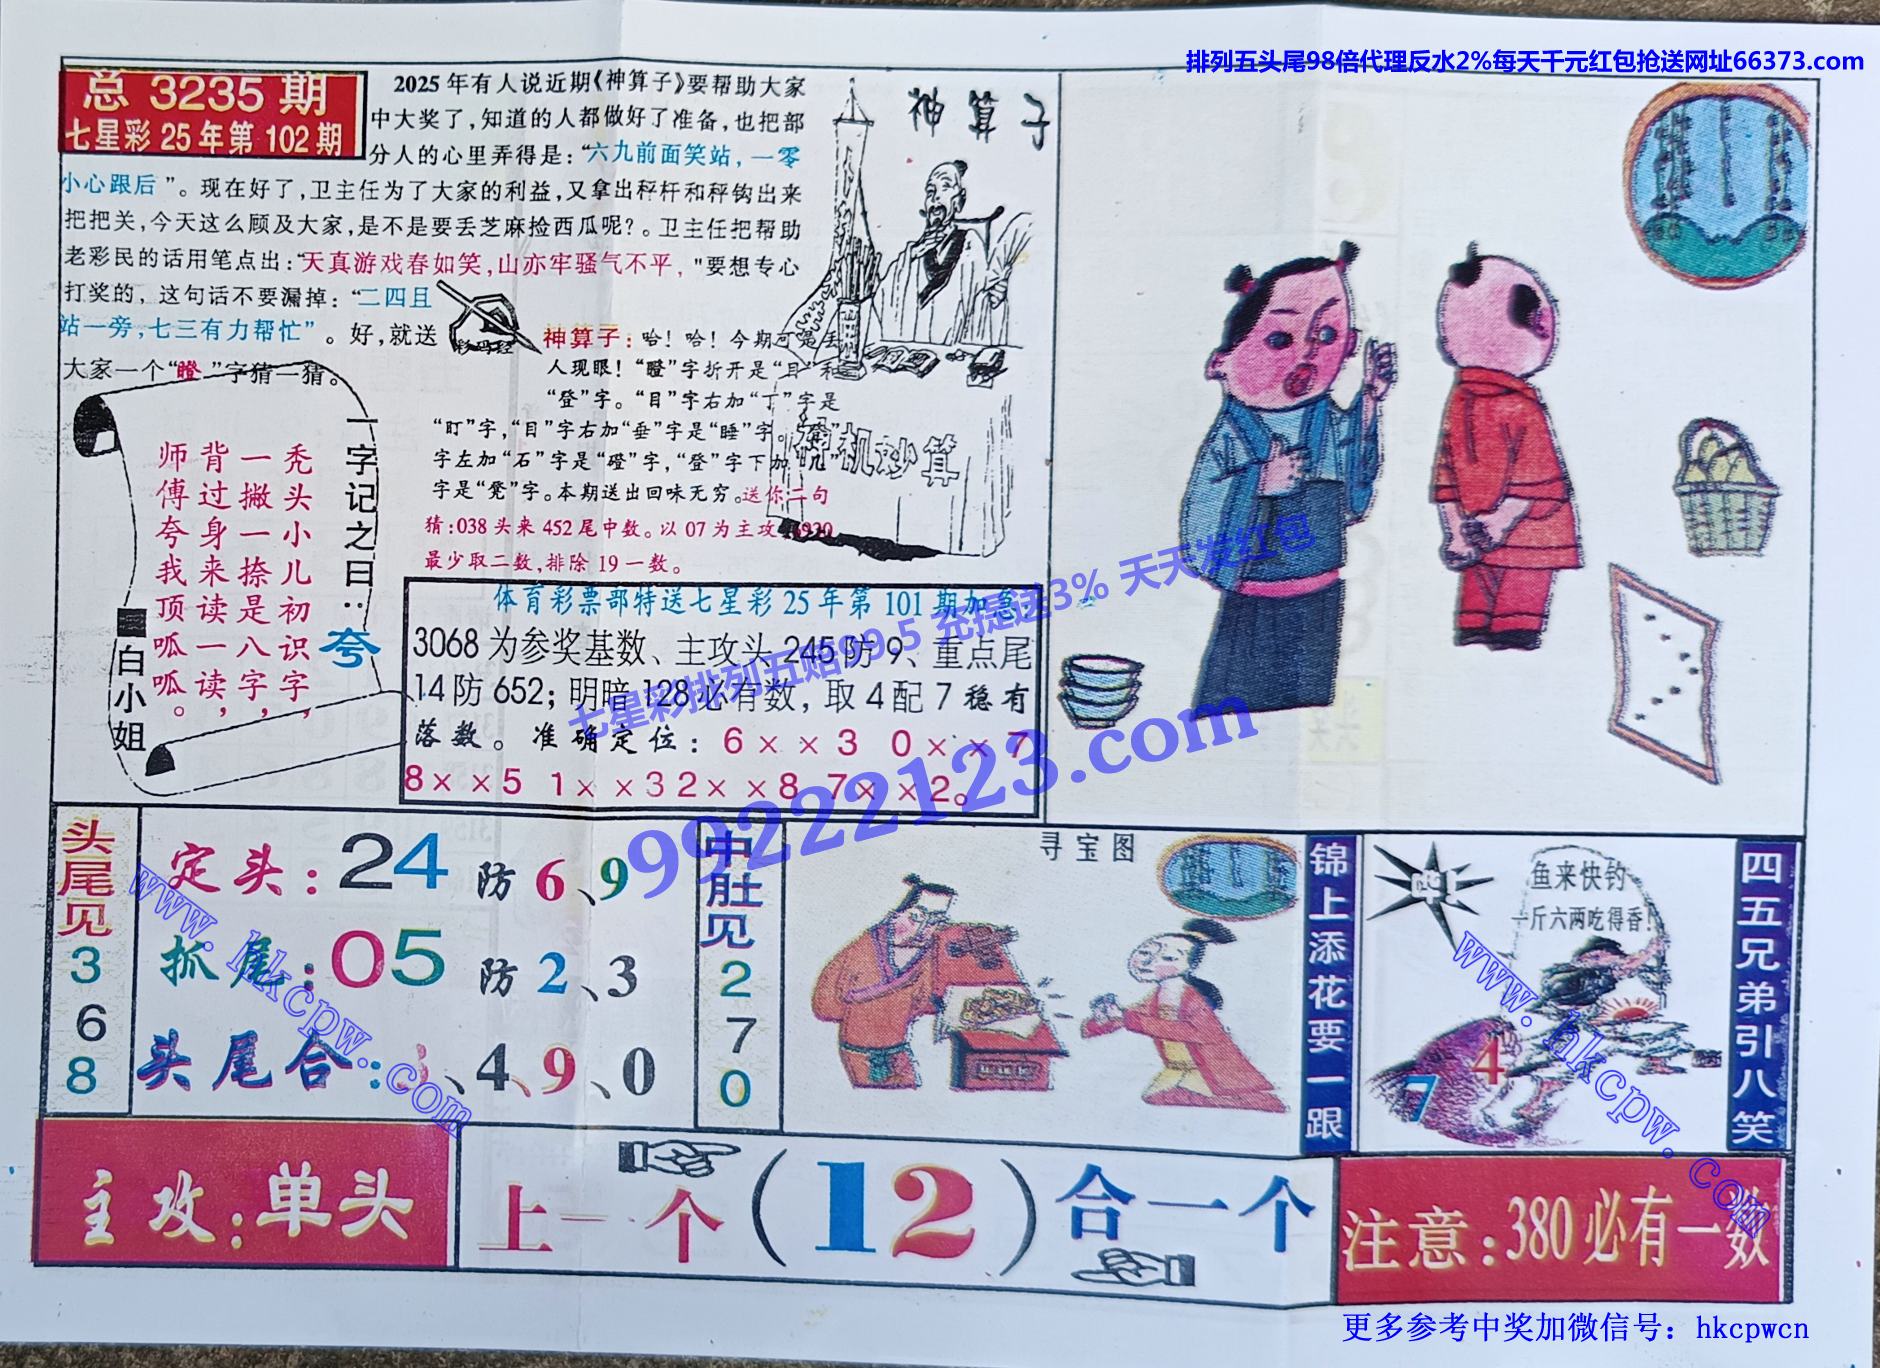 排列五头尾98倍代理反水2%每天千元红包抢送网址66373.com
总 3235 期
七星彩 25 年第 102 期
2025 年有人说近期《神算子》要帮助大家
中大奖了，知道的人都做好了准备，也把部
分人的心里弄得是：“六九前面笑站，一零
小心跟后”。现在好了，卫主任为了大家的利益，又拿出秤杆和秤钩出来
把把关，今天这么顾及大家，是不是要丢芝麻捡西瓜呢？。卫主任把帮助
老彩民的话用笔点出：“天真游戏春如笑，山亦牢骚气不平，"要想专心
打奖的，这句话不要漏掉：“二四且
站一旁，七三有力帮忙”。好，就送
大家一个“瞪”字猜一猜。
彩码经
神算子
神算子：哈！哈！今期可是丢
人现眼！“瞪”字折开是“目”和
“登”字。“目”字右加“丁”字是
“盯”字，“目”字右加“垂”字是“睡”字。
字左加“石”字是“磴”字，“登”字下加“几”
字是“凳”字。本期送出回味无穷。送你二句
猜：038 头来 452 尾中数。以 07 为主攻
最少取二数，排除 19 一数。
机妙算
一字记之曰：夸
秃头小儿初识字，
一撇一捺是八字，
背过身来读一读，
师傅夸我顶呱呱。
白小姐
体育彩票部特送七星彩 25 年第 101 期加急
3068 为参奖基数、主攻头 245 防 9、重点尾
14 防 652；明暗 128 必有数，取 4 配 7 稳有
落数。准确定位：6××3 0××7
8××5 1××3 2××8 7××2。
七星彩排列五赔99.5 充提送3% 天天发红包
99222123.com
头尾见
3
6
8
定头：24 防 6、9
抓尾：05 防 2、3
头尾合：、4、9、0
中肚见
2
7
0
寻宝图
锦上添花要一跟
鱼来快钓
一斤六两吃得香！
7
4
四五兄弟引八笑
www.hkcpw.com
www.hkcpw.com
主攻：单头
上一个（12）合一个
注意：380 必有一数
更多参考中奖加微信号：hkcpwcn